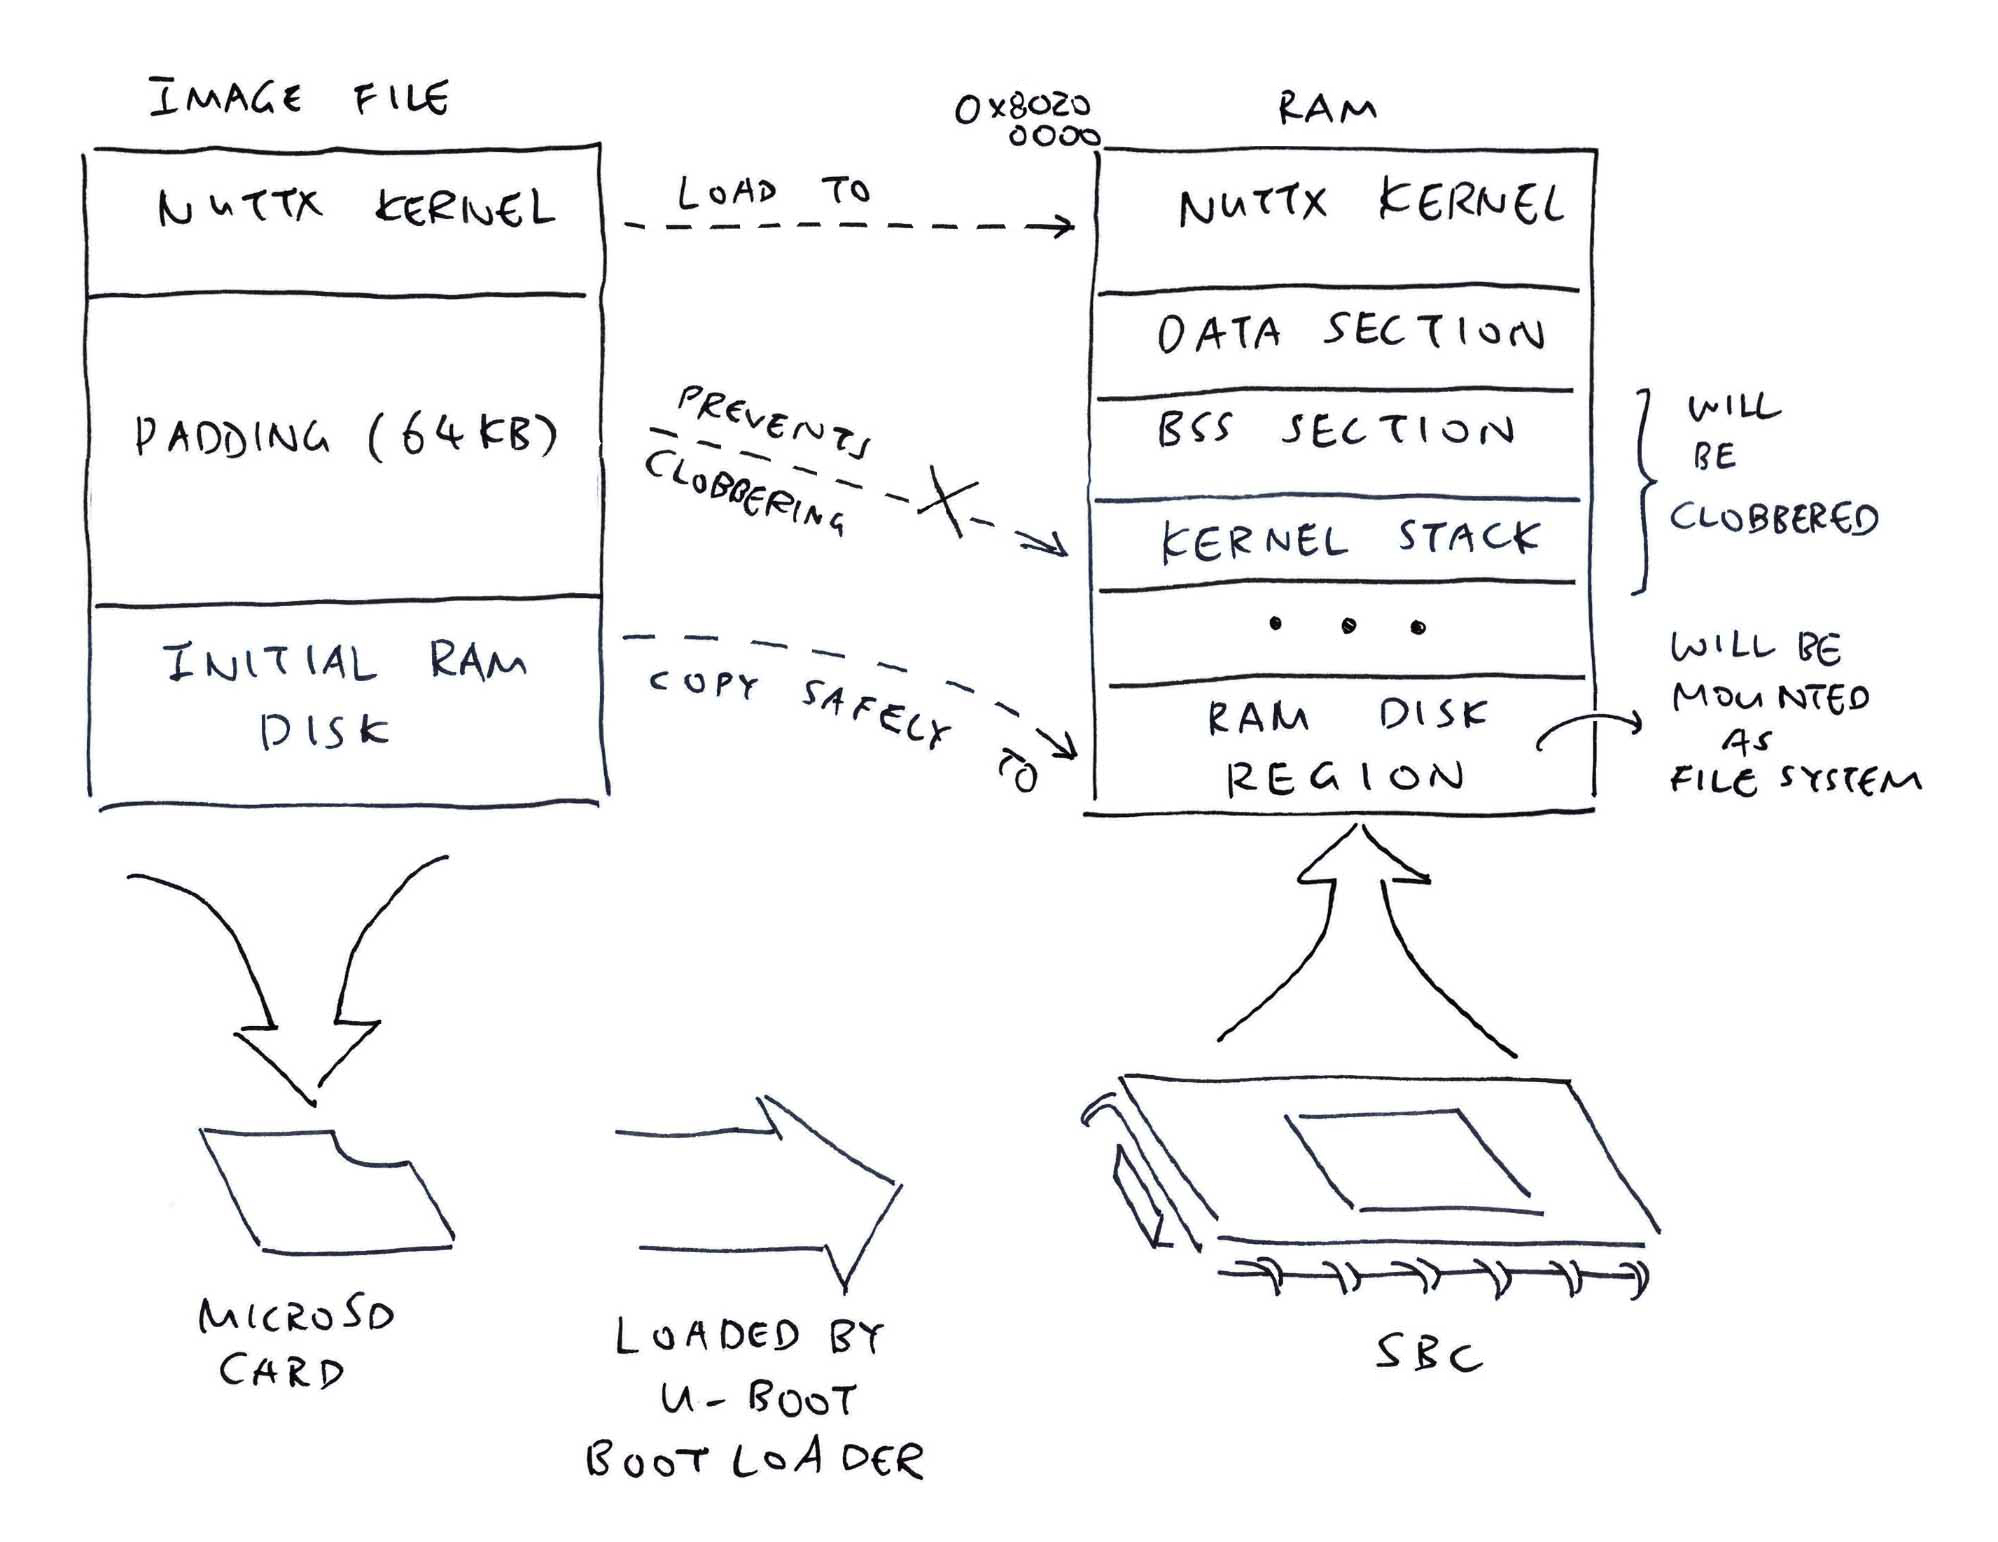 IMAGE FILE
NUTTX KERNEL
PADDING (64KB)
INITIAL RAM
DISK
LOAD TO
PREVENTS
CLOBBERING
COPY SAFELY TO
0x8020
0000
RAM
NUTTX KERNEL
DATA SECTION
BSS SECTION
KERNEL STACK
• • •
RAM DISK
REGION
WILL
BE
CLOBBERED
WILL BE
MOUNTED
AS
FILE SYSTEM
MICROSD
CARD
LOADED BY
U-BOOT
BOOTLOADER
SBC